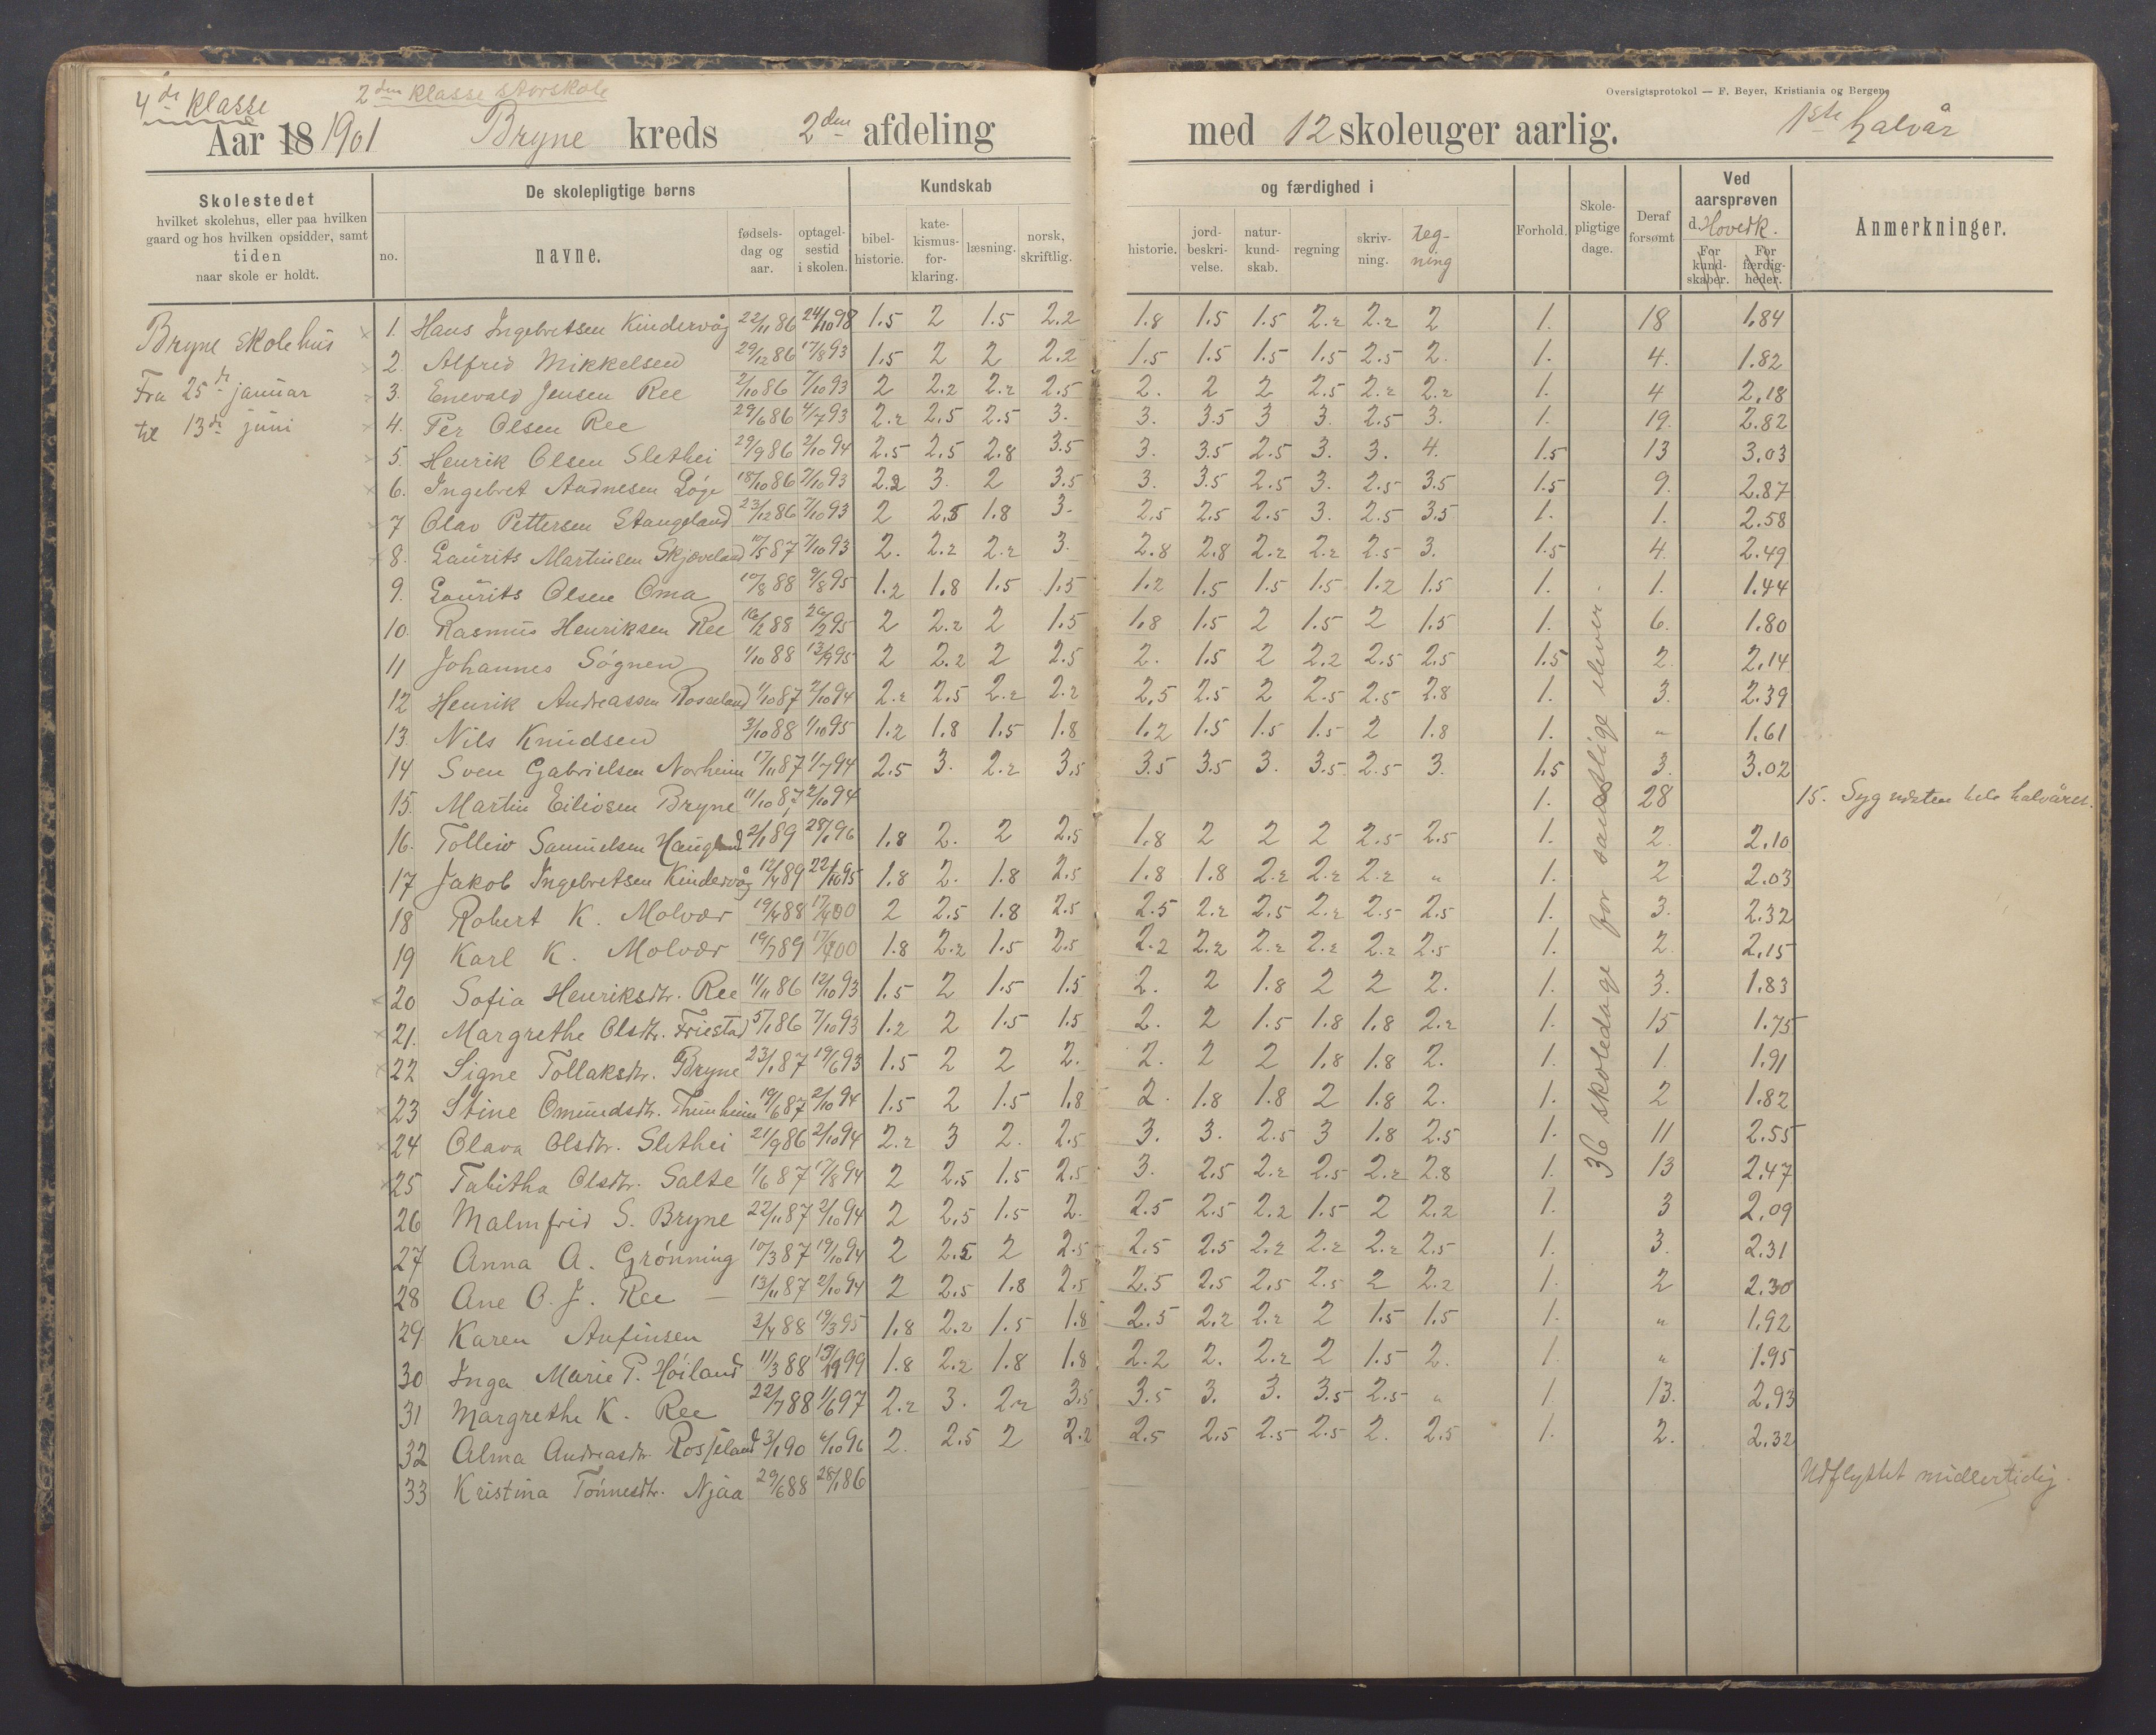 4de klasse 2den klasse storskole
Oversigtsprotokol — F. Beyer, Kristiania og Bergen.
Aar 18 1901 Bryne kreds 2den afdeling med 12 skoleuger aarlig. 1ste halvår
Skolestedet hvilket skolehus, eller paa hvilken gaard og hos hvilken opsidder, samt tiden naar skole er holdt.
De skolepligtige børns
Kundskab og færdighed i
no. navne. fødsels-dag og aar. optagel-sestid i skolen. bibel-historie. kate-kismus-for-klaring. læsning. norsk, skriftlig. historie. jord-beskri-velse. natur-kund-skab. regning skriv-ning. teg-ning Forhold. Skole-pligtige dage. Deraf forsømt Ved aarsprøven d. Hovedk. For kund-skaber. For færdig-heder. Anmerkninger.
Bryne skolehus
Fra 25de januar
til 13de juni
1. Hans Ingebretsen Kindervåg 22/11 86 24/10 98 1.5 2 1.5 2.2 1.8 1.5 1.5 2.2 2.2 2 1. 18 1.84
2. Alfred Mikkelsen 29/12 86 17/8 93 1.5 2 2 2.2 1.5 1.5 1.5 1.5 2.5 2. 1. 4. 1.82
3. Enevald Jensen Ree 2/10 86 7/10 93 2 2.2 2.2 2.5 2. 2 2 2.5 2.2 2.2 1. 4 2.18
4. Per Olsen Ree 29/6 86 4/7 93 2.2 2.5 2.5 3. 3. 3.5 3 3. 2.5 3. 1. 19. 2.82
5. Henrik Olsen Slethei 29/9 86 2/10 94 2.5 2.5 2.8 3.5 3. 3.5 2.5 3. 3. 4. 1.5 13 3.03
6. Ingebret Audnesen Løge 18/10 86 7/10 93 2.2 3. 2 3.5 3. 3.5 2.5 3. 2.5 3.5 1.5 9. 2.87
7 Olav Pettersen Stangeland 23/12 86 7/10 93 2 2.5 1.8 3. 2.5 2.5 2.5 3. 2.5 3.5 1. 1. 2.58
8. Laurits Martinsen Skjæveland 11/5 87 7/10 93 2. 2.2 2.2 3. 2.8 2.8 2.2 2.2 2.5 3. 1.5 4. 2.49
9. Laurits Olsen Oma 10/8 88 9/8 95 1.2 1.8 1.5 1.5 1.2 1.5 1.5 1.5 1.2 1.5 1. 1. 1.44
10. Rasmus Henriksen Ree 16/2 88 26/2 95 2 2.2 2 1.5 1.8 1.5 2 1.5 2 1.5 1. 6. 1.80
11 Johannes Søgnen 1/10 88 13/9 95 2 2.2 2 2.5 2. 1.5 2 2.2 2.5 2.5 1.5 2. 2.14
12 Henrik Andreassen Rosseland 1/10 87 2/10 94 2.2 2.5 2.2 2.2 2.5 2.5 2 2.5 2.5 2.8 1. 3. 2.39
13. Nils Knudsen 3/10 88 1/10 95 1.2 1.8 1.5 1.8 1.2 1.5 1.5 1.5 2 1.8 1. " 1.61
14 Sven Gabrielsen Norheim 17/11 87 11/7 94 2.5 3. 2.2 3.5 3.5 3.5 3. 3.5 2.5 3. 1.5 3. 3.02
15. Martin Eilivsen Bryne 11/10 87 2/10 94 1. 28 15. Syg næsten hele halvåret.
16. Tolleiv Samuelsen Haugland 2/1 89 28/1 96 1.8 2. 2 2.5 1.8 2 2 2 2.5 2.5 1. 2. 2.10
17 Jakob Ingebretsen Kindervåg 12/4 89 22/10 95 1.8 2. 1.8 2.5 1.8 1.8 2.2 2.2 2.2 " 1. 2 2.03
18 Robert K. Molvær 19/4 88 17/9 00 2 2.5 1.8 2.5 2.5 2.2 2.5 2.2 2.5 2.5 1. 3. 2.32
19 Karl K. Molvær 19/7 89 17/9 00 1.8 2.2 1.5 2.5 2.2 2.2 2.2 2.2 2.2 2.5 1. 2. 2.15
20 Sofia Henriksdtr. Ree 11/11 86 12/10 93 1.5 2 1.5 1.5 2. 2 1.8 2 2 2. 1. 3. 1.83
21. Margrethe Olsdtr. Friestad 5/1 86 7/10 93 1.2 2 1.5 1.5 2. 2 1.5 1.8 1.8 2.2 1. 15 1.75
22 Signe Tollaksdtr. Bryne 23/1 87 19/6 93 1.5 2 2 2. 2. 2 2 1.8 1.8 2. 1. 1. 1.91
23 Stine Omundsdtr. Thunheim 19/6 87 2/10 94 1.5 2 1.5 1.8 2. 1.8 1.8 2 1.8 2. 1. 2 1.82
24 Olava Olsdtr. Slethei 21/9 86 2/10 94 2.2 3 2. 2.5 3. 3. 2.5 3 1.8 2.5 1. 11 2.55
25 Tabitha Olsdtr. Salte 1/6 87 17/8 94 2 2.5 1.5 2.5 3. 2.5 2.2 2.5 2.2 2.8 1. 13 2.47
26 Malmfrid S. Bryne 22/11 87 2/10 94 2 2.5 1.5 2. 2.5 2.5 2.2 1.5 2 2.2 1. 3 2.09
27 Anna A. Grønning 10/3 87 19/10 94 2 2.5 2 2.5 2.5 2.5 2.2 2.2 2.2 2.5 1. 3. 2.31
28 Ane O. J. Ree — 13/11 87 2/10 94 2 2.5 1.8 2.5 2.5 2.5 2.5 2.5 2 2.2 1. 2 2.30
29 Karen Anfinsen 3/4 88 19/3 95 1.8 2.2 1.5 1.8 2.5 2.2 2.2 2 1.5 1.5 1. " 1.92
30 Inga Marie P. Høiland 11/3 88 99 1.8 2.2 1.8 1.8 2.2 2. 2.2 2 1.5 2. 1. " 1.95
31 Margrethe K. Ree 22/7 88 1/6 97 2.2 3. 2.2 3.5 3.5 3. 3. 3.5 2.5 " 1. 13. 2.93
32 Alma Andreasdtr. Rosseland 3/1 90 6/10 96 2. 2.5 2 2.2 2.5 2.5 2.5 2.5 2. 2.5 1. 2. 2.32
33 Kristina Tønnesdtr. Njaa 29/6 88 28/1 86 Udflyttet midlertidig.
36 skoledage for samtlige elever.